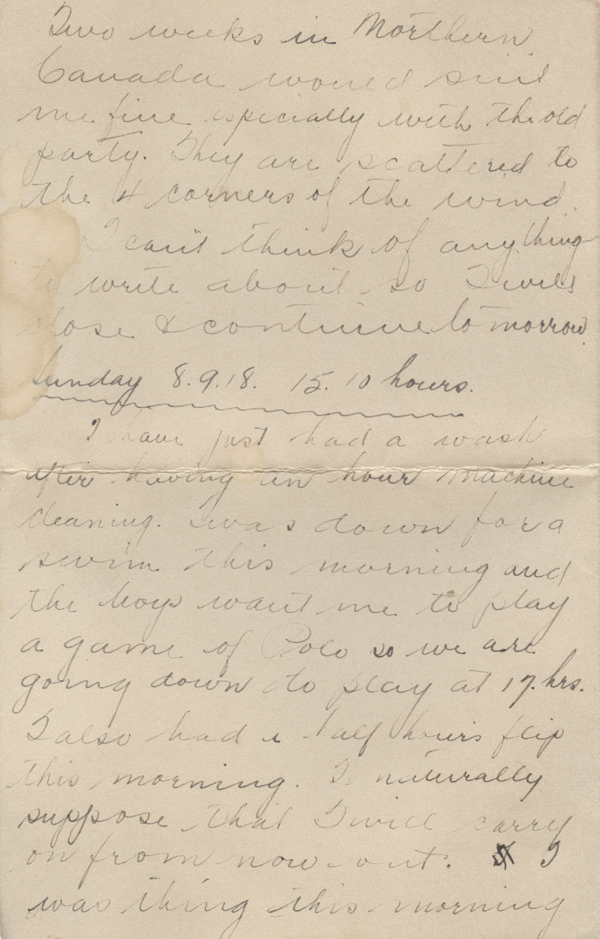 Two weeks in Northern
Canada would suit
me fine especially with the old
party. They are scattered to
the 4 corners of the wind.
I can't think of anything
to write about so I will
close & continue tomorrow.
Sunday 8.9.18. 15.10 hours.
I have just had a wash
after having an hour machine
cleaning. I was down for a
swim this morning and
the boys want me to play
a game of Polo so we are
going down to play at 17. hrs.
I also had a half hour's flip
this morning. I naturally
suppose that I will carry
on from now out. I
was thing this morning